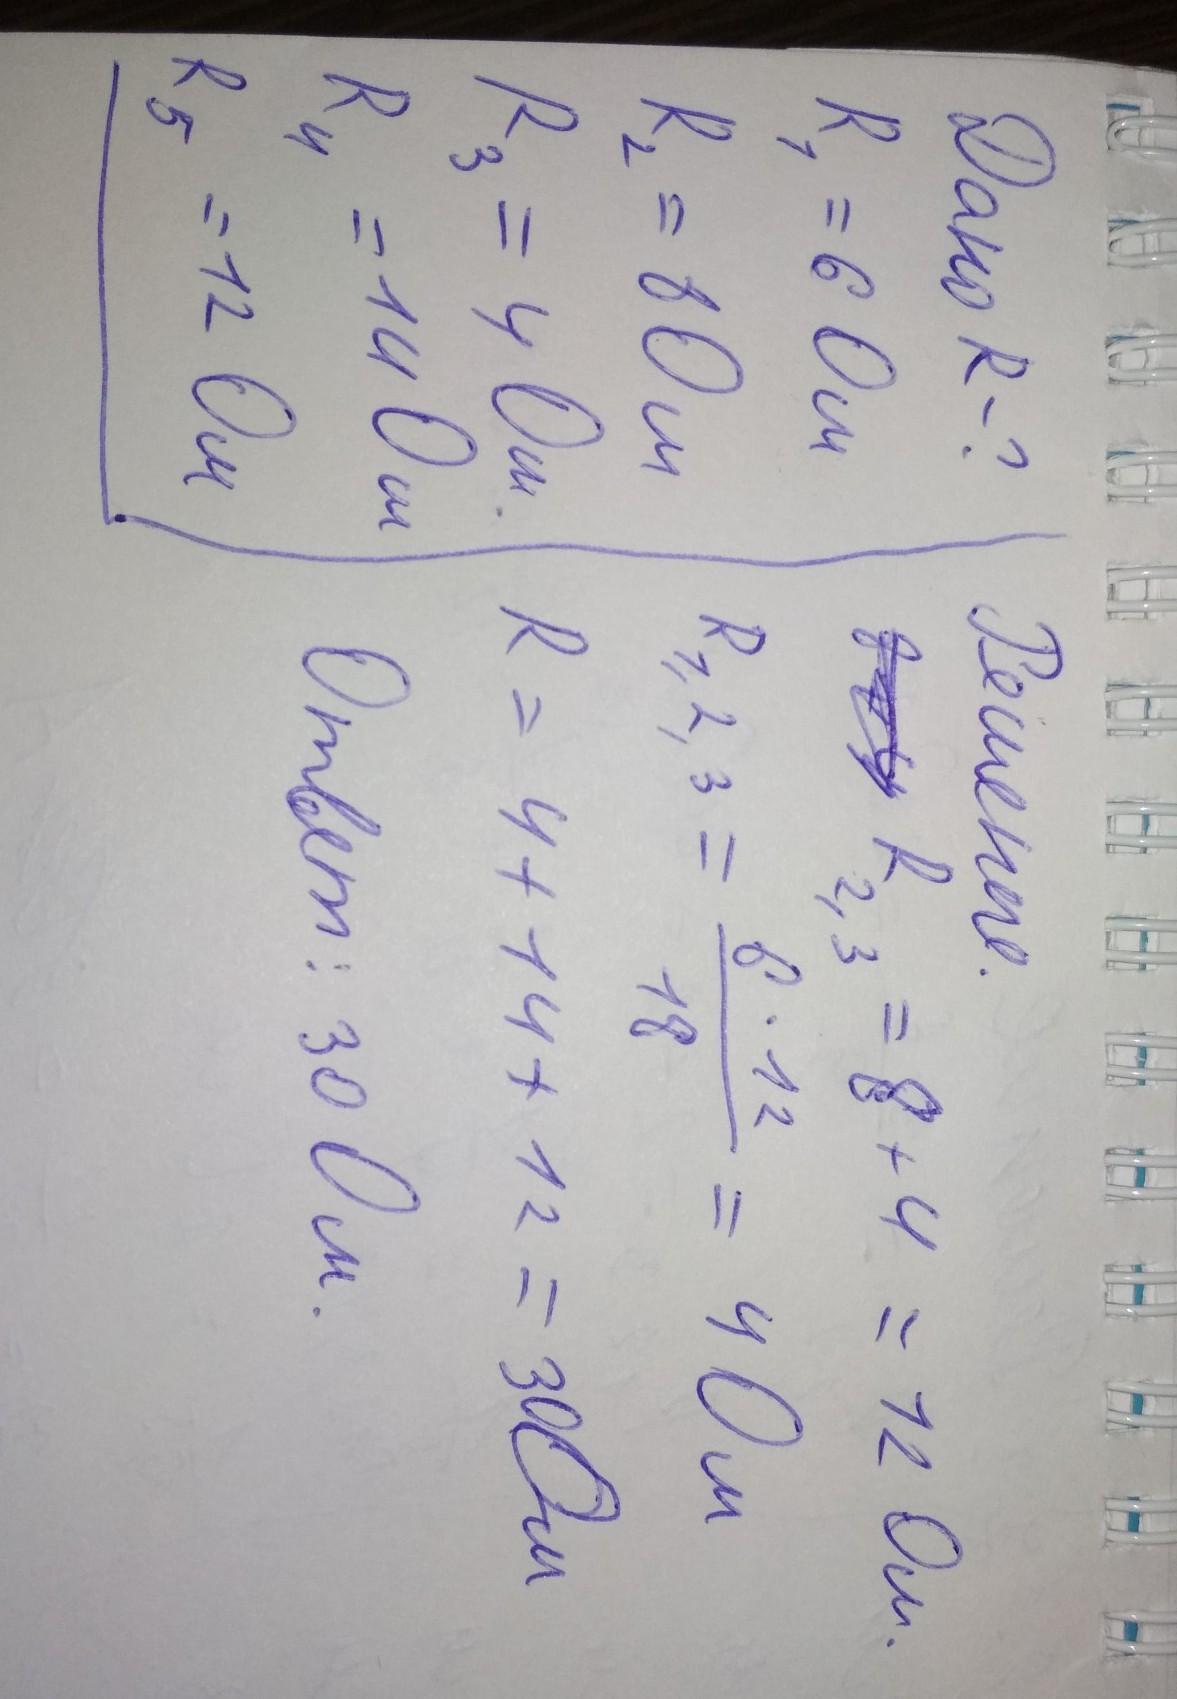 Дано R-?
R1 = 6 Ом
R2 = 8 Ом
R3 = 4 Ом.
R4 = 14 Ом
R5 = 12 Ом
Решение.
R2,3 = 8 + 4 = 12 Ом.
R1,2,3 = 6 · 12 / 18 = 4 Ом
R = 4 + 14 + 12 = 30 Ом
Ответ: 30 Ом.